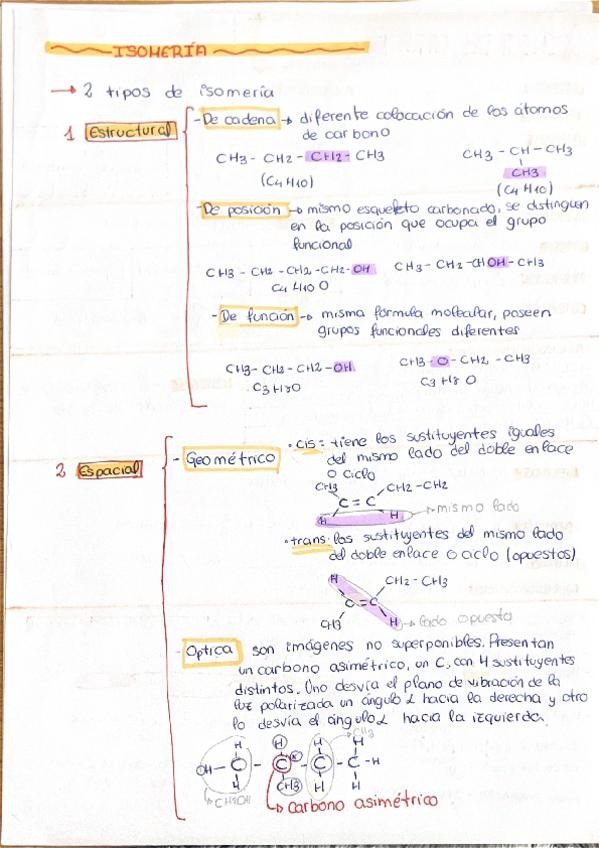 ISOMERÍA
→ 2 tipos de isomería
1 Estructural
- De cadena → diferente colocación de los átomos
de carbono
CH3 - CH2 - CH2 - CH3
(C4 H10)
CH3 - CH - CH3
CH3
(C4 H10)
- De posición → mismo esqueleto carbonado, se distinguen
en la posición que ocupa el grupo
funcional
CH3 - CH2 - CH2 - CH2 - OH
C4 H10 O
CH3 - CH2 - CHOH - CH3
- De función → misma fórmula molecular, poseen
grupos funcionales diferentes
CH3 - CH2 - CH2 - OH
C3 H8O
CH3 - O - CH2 - CH3
C3 H8 O
2 Espacial
- Geométrico
• cis = tiene los sustituyentes iguales
del mismo lado del doble enlace
o ciclo
CH3
CH2 - CH2
C = C
H H
→ mismo lado
• trans: los sustituyentes del mismo lado
del doble enlace o ciclo (opuestos)
H
CH2 - CH3
C = C
CH3
H
→ lado opuesto
- Optica
son imágenes no superponibles. Presentan
un carbono asimétrico, un C, con 4 sustituyentes
distintos. Uno desvía el plano de vibración de la
luz polarizada un ángulo α hacia la derecha y otro
lo desvía el ángulo α hacia la izquierda.
H H H H
→ CH3
OH - C - C* - C - C - H
H CH3 H H
→ CH2OH
→ Carbono asimétrico